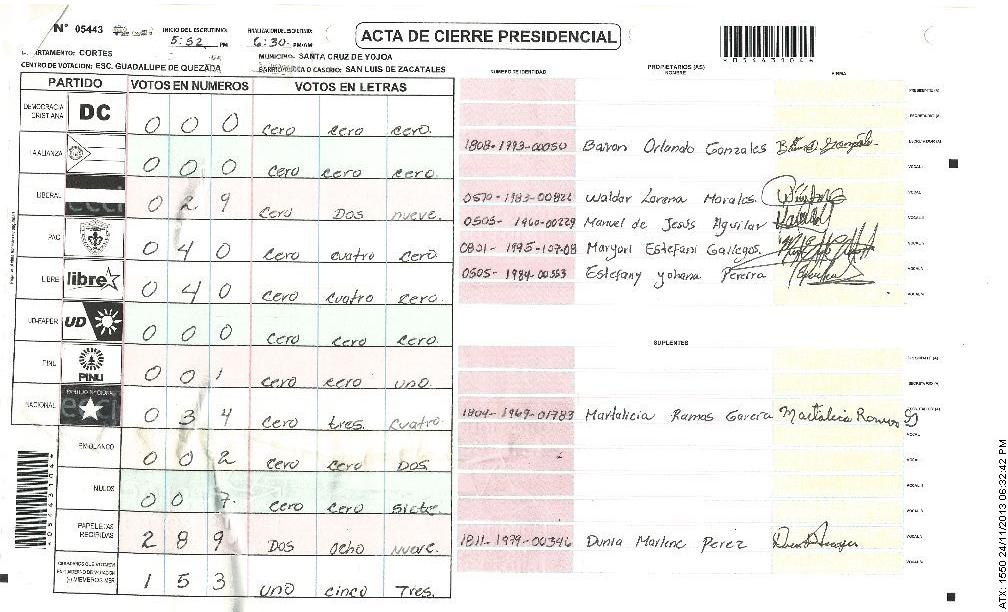 N° 05443
INICIO DEL ESCRUTINIO: 5:52 PM
FINALIZACION DEL ESCRUTINIO: 6:30 PM/AM
ACTA DE CIERRE PRESIDENCIAL
*05443104*
DEPARTAMENTO: CORTES
MUNICIPIO: SANTA CRUZ DE YOJOA
CENTRO DE VOTACION: ESC. GUADALUPE DE QUEZADA
BARRIO/ALDEA O CASERIO: SAN LUIS DE ZACATALES
PARTIDO VOTOS EN NUMEROS VOTOS EN LETRAS
DEMOCRACIA CRISTIANA DC 0 0 0 cero cero cero.
LA ALIANZA 0 0 0 cero cero cero.
LIBERAL 0 2 9 cero Dos nueve.
PAC 0 4 0 cero cuatro cero
LIBRE libre 0 4 0 cero cuatro cero.
UD-FAPER UD 0 0 0 cero cero cero.
PINU PINU 0 0 1 cero cero uno.
NACIONAL PARTIDO NACIONAL 0 3 4 cero tres. cuatro.
EN BLANCO 0 0 2 cero cero Dos
NULOS 0 0 7. cero cero siete.
PAPELETAS RECIBIDAS 2 8 9 Dos ocho nueve.
CIUDADANOS QUE VOTARON EN CUADERNO DE VOTACION (+) MIEMBROS MER 1 5 3 uno cinco Tres.
*05443104*
NUMERO DE IDENTIDAD
PROPIETARIOS (AS)
NOMBRE
FIRMA
PRESIDENTE (A)
SECRETARIO (A)
1808-1993-00050 Bairon Orlando Gonzales ESCRUTADOR (A)
VOCAL I
0510-1983-00826 Waldor Lorena Morales.
0505-1960-00229 Manuel de Jesús Aguilar
0801-1995-107-08 Maryori Estefani Gallegos.
0505-1984-00553 Estefany yohana Pereira
SUPLENTES
PRESIDENTE (A)
SECRETARIO (A)
1804-1969-01783 Martalicia Ramos Garcia Martalicia Ramos
1811-1979-00346 Dunia Marlene Perez
ATX: 1550 24/11/2013 06:32:42 PM